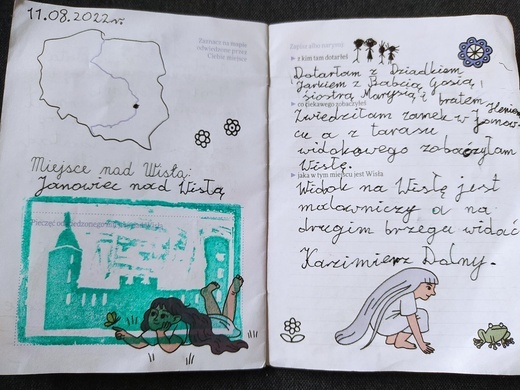 11.08.2022r.
Zaznacz na mapie
odwiedzone przez
Ciebie miejsce
Miejsce nad Wisłą:
Janowiec nad Wisłą
Pieczęć
Zapisz albo narysuj:
z kim tam dotarłeś
Dotarłam z Dziadkiem
Jarkiem z Babcią Gosią i
siostrą Marysią i bratem
Heniem
co ciekawego zobaczyłeś
Zwiedziłam zamek w Janow-
cu a z tarasu
widokowego zobaczyłam
Wisłę.
jaka w tym miejscu jest Wisła
Widok na Wisłę jest
malowniczy a na
drugim brzegu widać
Kazimierz Dolny.